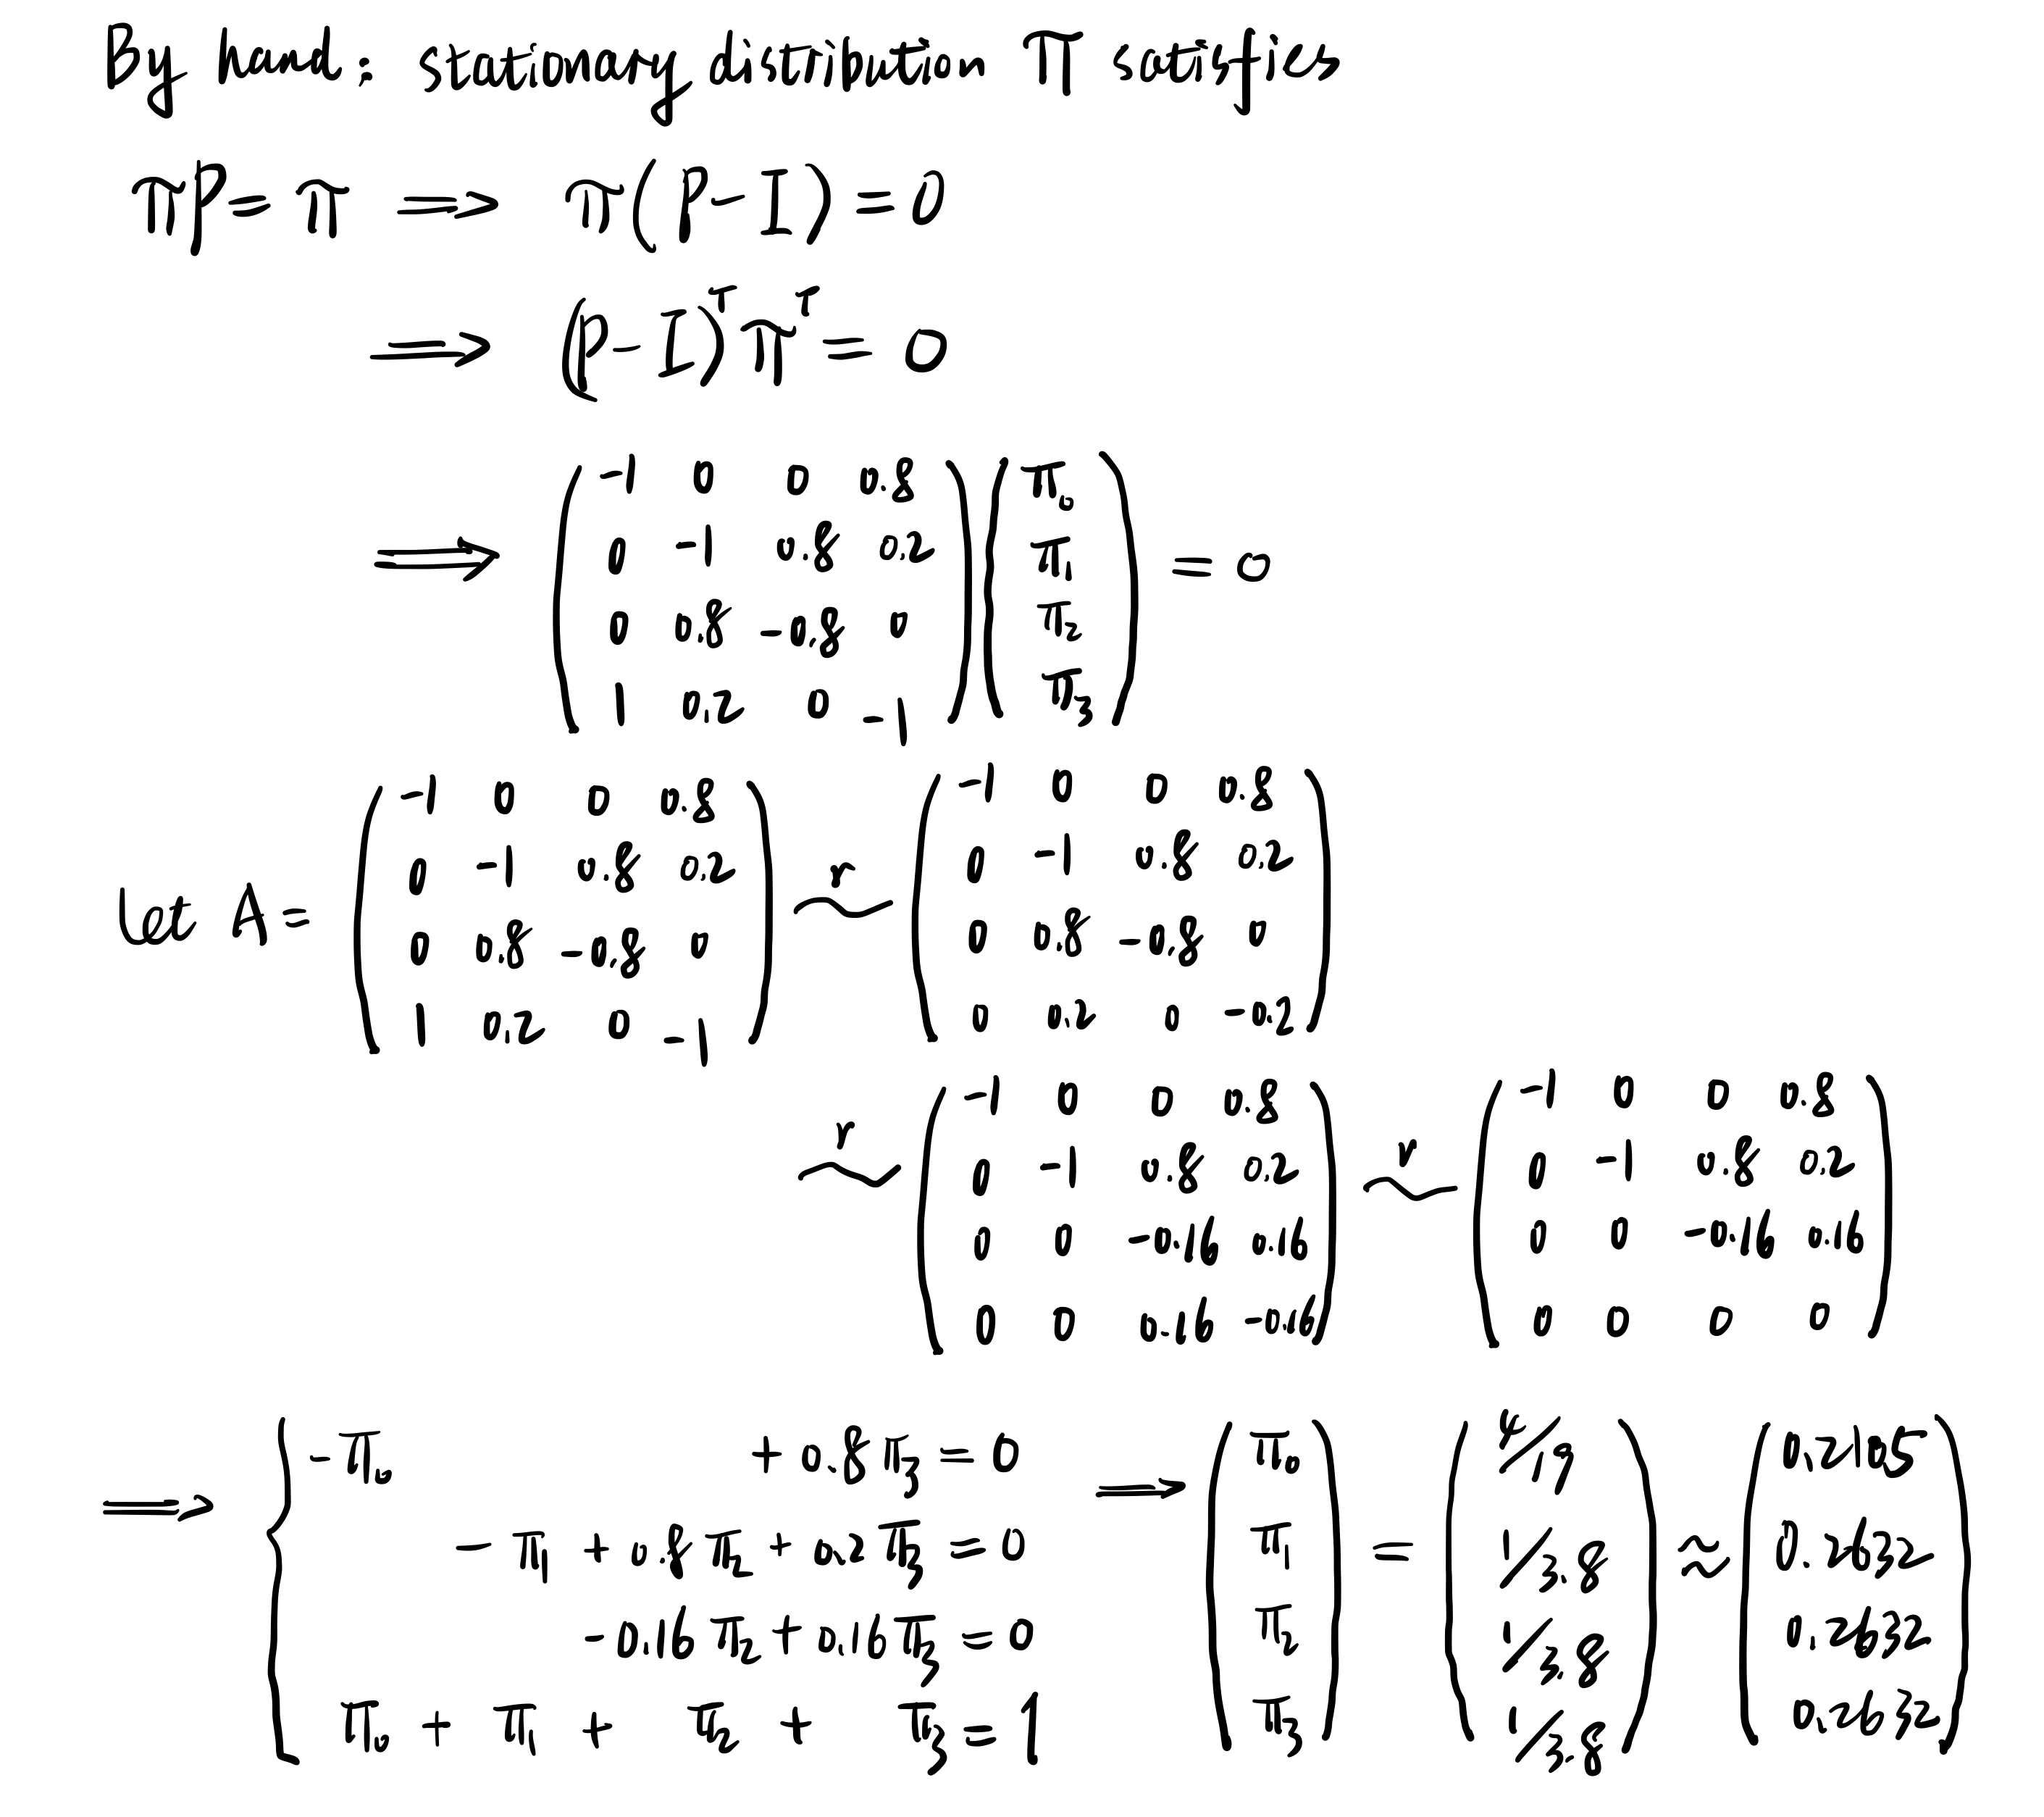 By hand: stationary distribution π satisfies
πP = π ⟹ π(P-I) = 0
⟹ (P-I)^T π^T = 0
⟹ \begin{pmatrix} -1 & 0 & 0 & 0.8 \\ 0 & -1 & 0.8 & 0.2 \\ 0 & 0.8 & -0.8 & 0 \\ 1 & 0.2 & 0 & -1 \end{pmatrix} \begin{pmatrix} π_0 \\ π_1 \\ π_2 \\ π_3 \end{pmatrix} = 0
Let A = \begin{pmatrix} -1 & 0 & 0 & 0.8 \\ 0 & -1 & 0.8 & 0.2 \\ 0 & 0.8 & -0.8 & 0 \\ 1 & 0.2 & 0 & -1 \end{pmatrix} \overset{r}{\sim} \begin{pmatrix} -1 & 0 & 0 & 0.8 \\ 0 & -1 & 0.8 & 0.2 \\ 0 & 0.8 & -0.8 & 0 \\ 0 & 0.2 & 0 & -0.2 \end{pmatrix}
\overset{r}{\sim} \begin{pmatrix} -1 & 0 & 0 & 0.8 \\ 0 & -1 & 0.8 & 0.2 \\ 0 & 0 & -0.16 & 0.16 \\ 0 & 0 & 0.16 & -0.16 \end{pmatrix} \overset{r}{\sim} \begin{pmatrix} -1 & 0 & 0 & 0.8 \\ 0 & -1 & 0.8 & 0.2 \\ 0 & 0 & -0.16 & 0.16 \\ 0 & 0 & 0 & 0 \end{pmatrix}
⟹ \begin{cases} -π_0 + 0.8π_3 = 0 \\ -π_1 + 0.8π_2 + 0.2π_3 = 0 \\ -0.16π_2 + 0.16π_3 = 0 \\ π_0 + π_1 + π_2 + π_3 = 1 \end{cases} ⟹ \begin{pmatrix} π_0 \\ π_1 \\ π_2 \\ π_3 \end{pmatrix} = \begin{pmatrix} 4/19 \\ 1/3.8 \\ 1/3.8 \\ 1/3.8 \end{pmatrix} ≈ \begin{pmatrix} 0.2105 \\ 0.2632 \\ 0.2632 \\ 0.2632 \end{pmatrix}